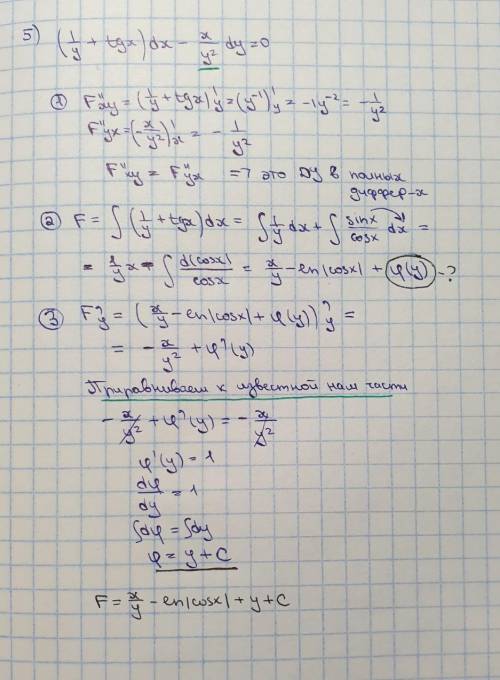 5) (1/y + tgx) dx − x/y² dy = 0
① F''xy = (1/y + tgx)'y = (y⁻¹)'y = −1y⁻² = −1/y²
F''yx = (−x/y²)'x = −1/y²
F''xy = F''yx => это ДУ в полных
диффер-х
② F = ∫(1/y + tgx) dx = ∫1/y dx + ∫ sinx/cosx dx =
= 1/y x − ∫ d(cosx)/cosx = x/y − ln|cosx| + φ(y) - ?
③ F'y = (x/y − ln|cosx| + φ(y))'y =
= −x/y² + φ'(y)
Приравниваем к известной нам части
−x/y² + φ'(y) = −x/y²
φ'(y) = 1
dφ/dy = 1
∫dφ = ∫dy
φ = y + C
F = x/y − ln|cosx| + y + C